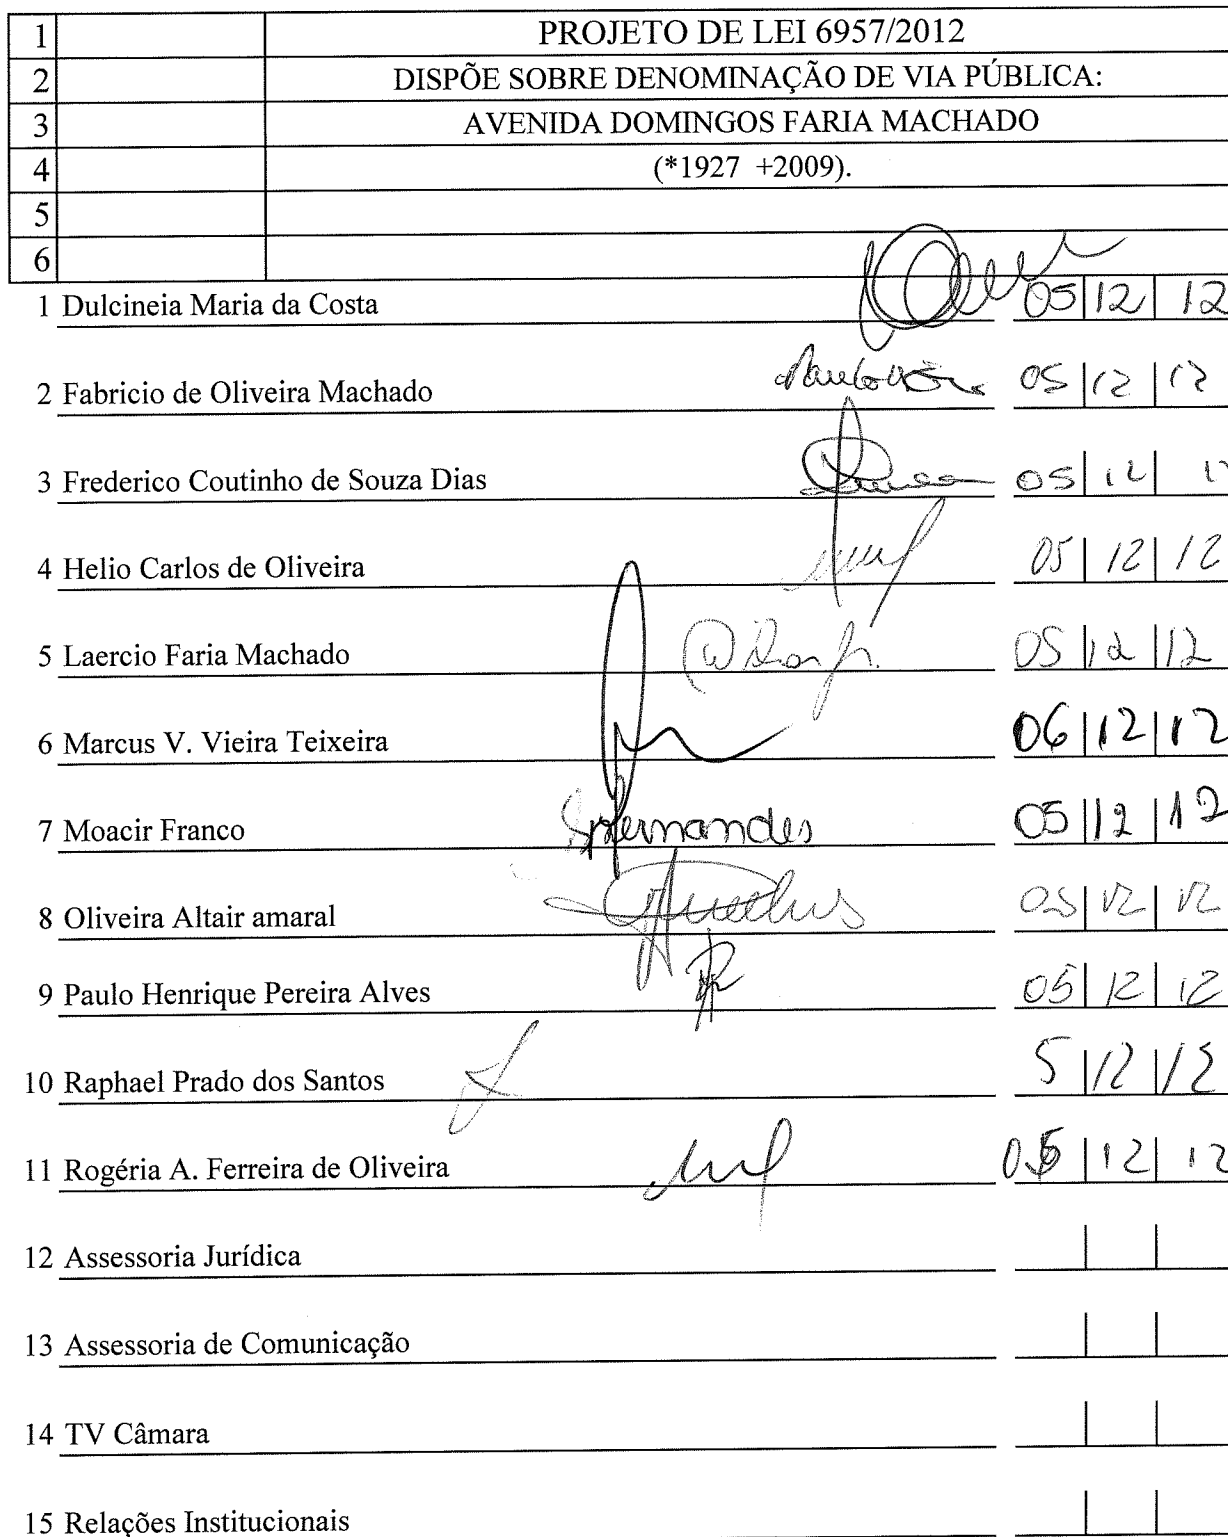 1 PROJETO DE LEI 6957/2012
2 DISPÕE SOBRE DENOMINAÇÃO DE VIA PÚBLICA:
3 AVENIDA DOMINGOS FARIA MACHADO
4 (*1927 +2009).
5
6
1 Dulcineia Maria da Costa 05|12|12
2 Fabricio de Oliveira Machado 05|12|12
3 Frederico Coutinho de Souza Dias 05|12|
4 Helio Carlos de Oliveira 05|12|12
5 Laercio Faria Machado 05|12|12
6 Marcus V. Vieira Teixeira 06|12|12
7 Moacir Franco Fernandes 05|12|12
8 Oliveira Altair amaral 05|12|12
9 Paulo Henrique Pereira Alves 05|12|12
10 Raphael Prado dos Santos 5|12|12
11 Rogéria A. Ferreira de Oliveira |12|12
12 Assessoria Jurídica
13 Assessoria de Comunicação
14 TV Câmara
15 Relações Institucionais